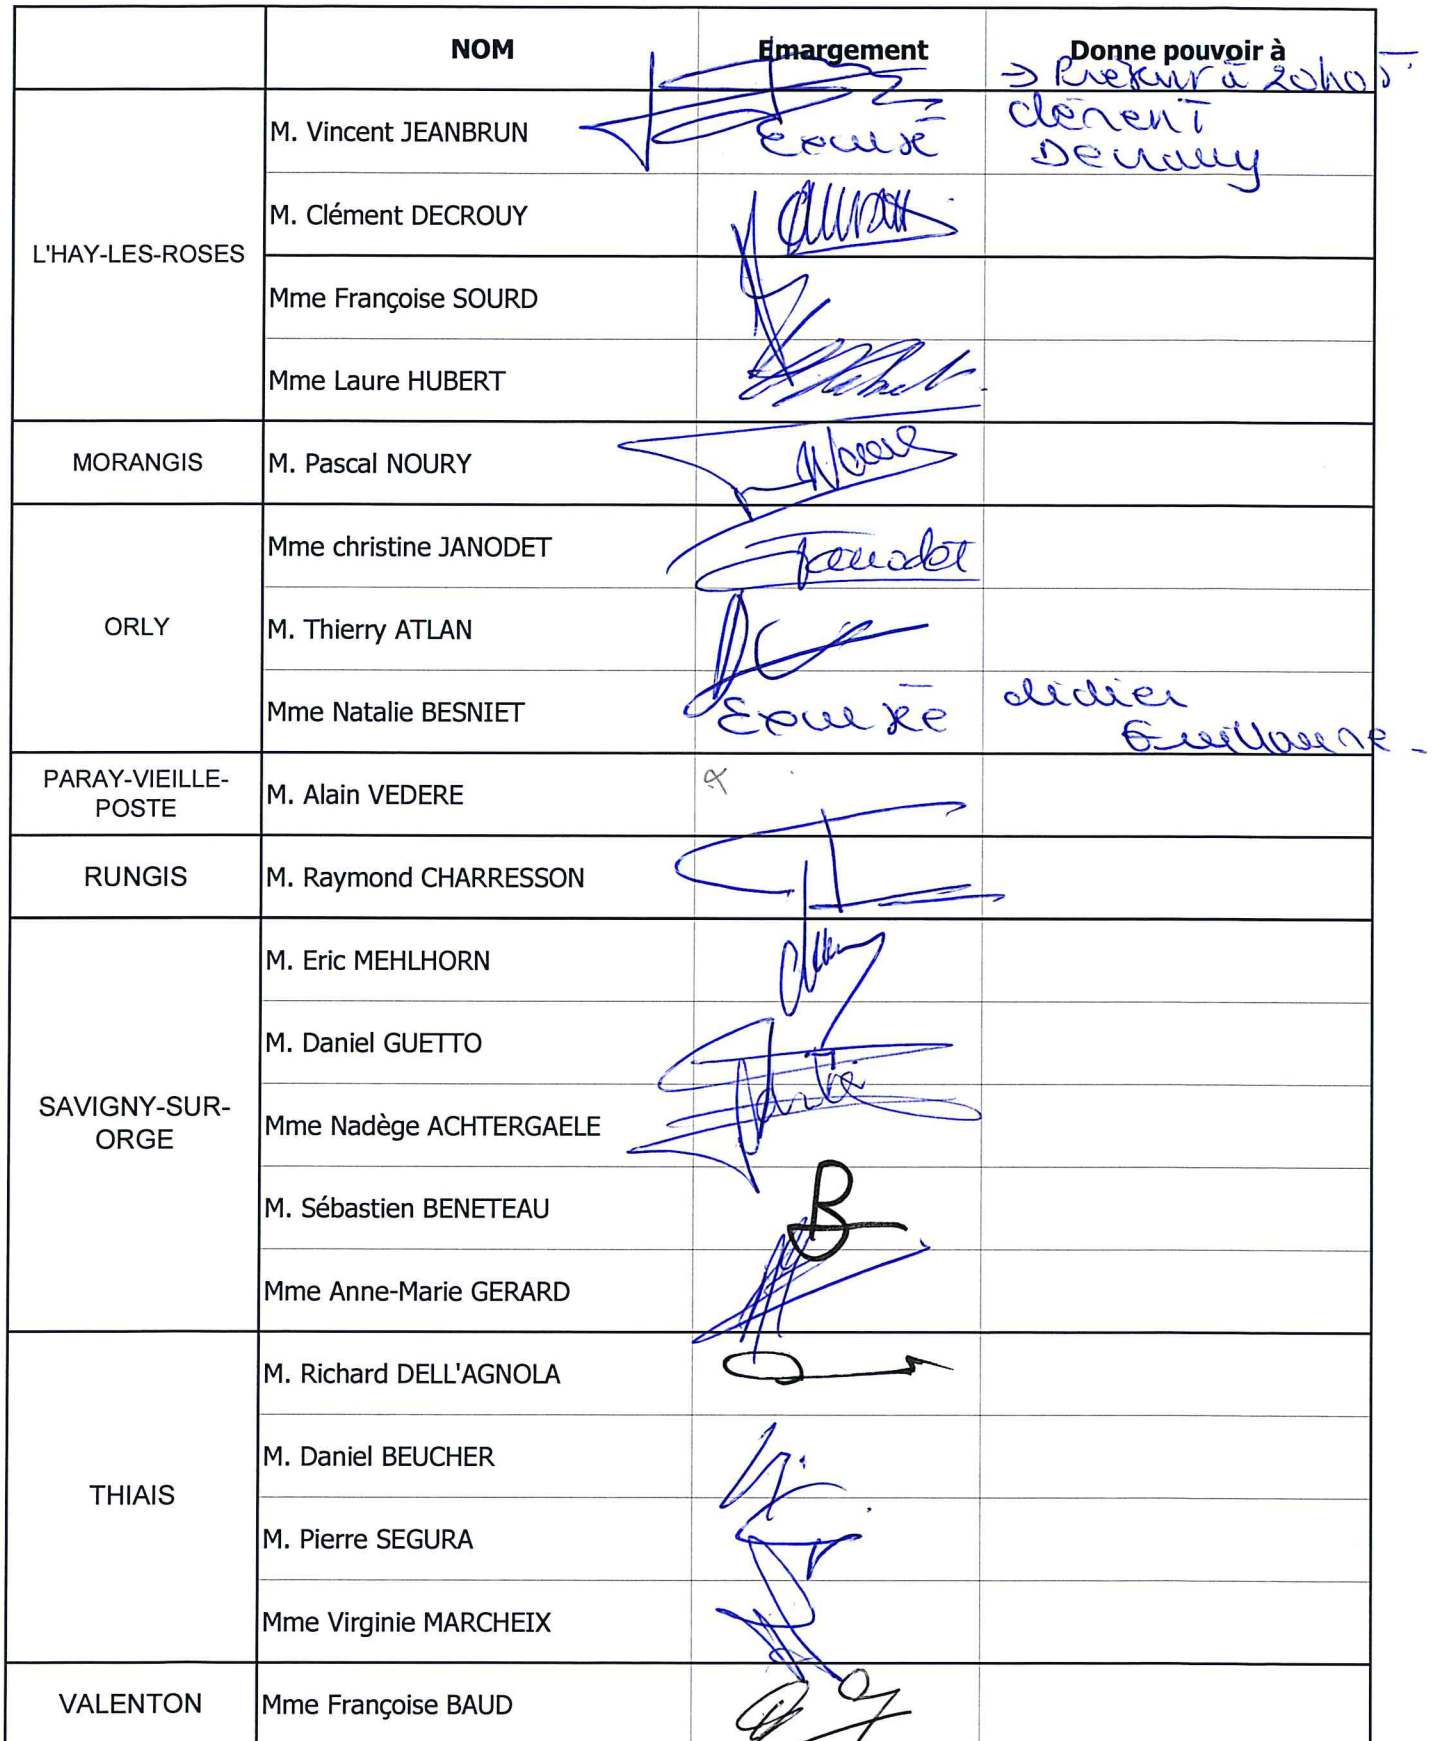 NOM Emargement Donne pouvoir à
→ Présent à 20h05
L'HAY-LES-ROSES
M. Vincent JEANBRUN Excusé clément
Decrouy
M. Clément DECROUY
Mme Françoise SOURD
Mme Laure HUBERT
MORANGIS M. Pascal NOURY
ORLY
Mme christine JANODET Janodet
M. Thierry ATLAN
Mme Natalie BESNIET Excusée didier
Guillaume
PARAY-VIEILLE-
POSTE
M. Alain VEDERE
RUNGIS M. Raymond CHARRESSON
SAVIGNY-SUR-
ORGE
M. Eric MEHLHORN
M. Daniel GUETTO
Mme Nadège ACHTERGAELE
M. Sébastien BENETEAU
Mme Anne-Marie GERARD
THIAIS
M. Richard DELL'AGNOLA
M. Daniel BEUCHER
M. Pierre SEGURA
Mme Virginie MARCHEIX
VALENTON Mme Françoise BAUD